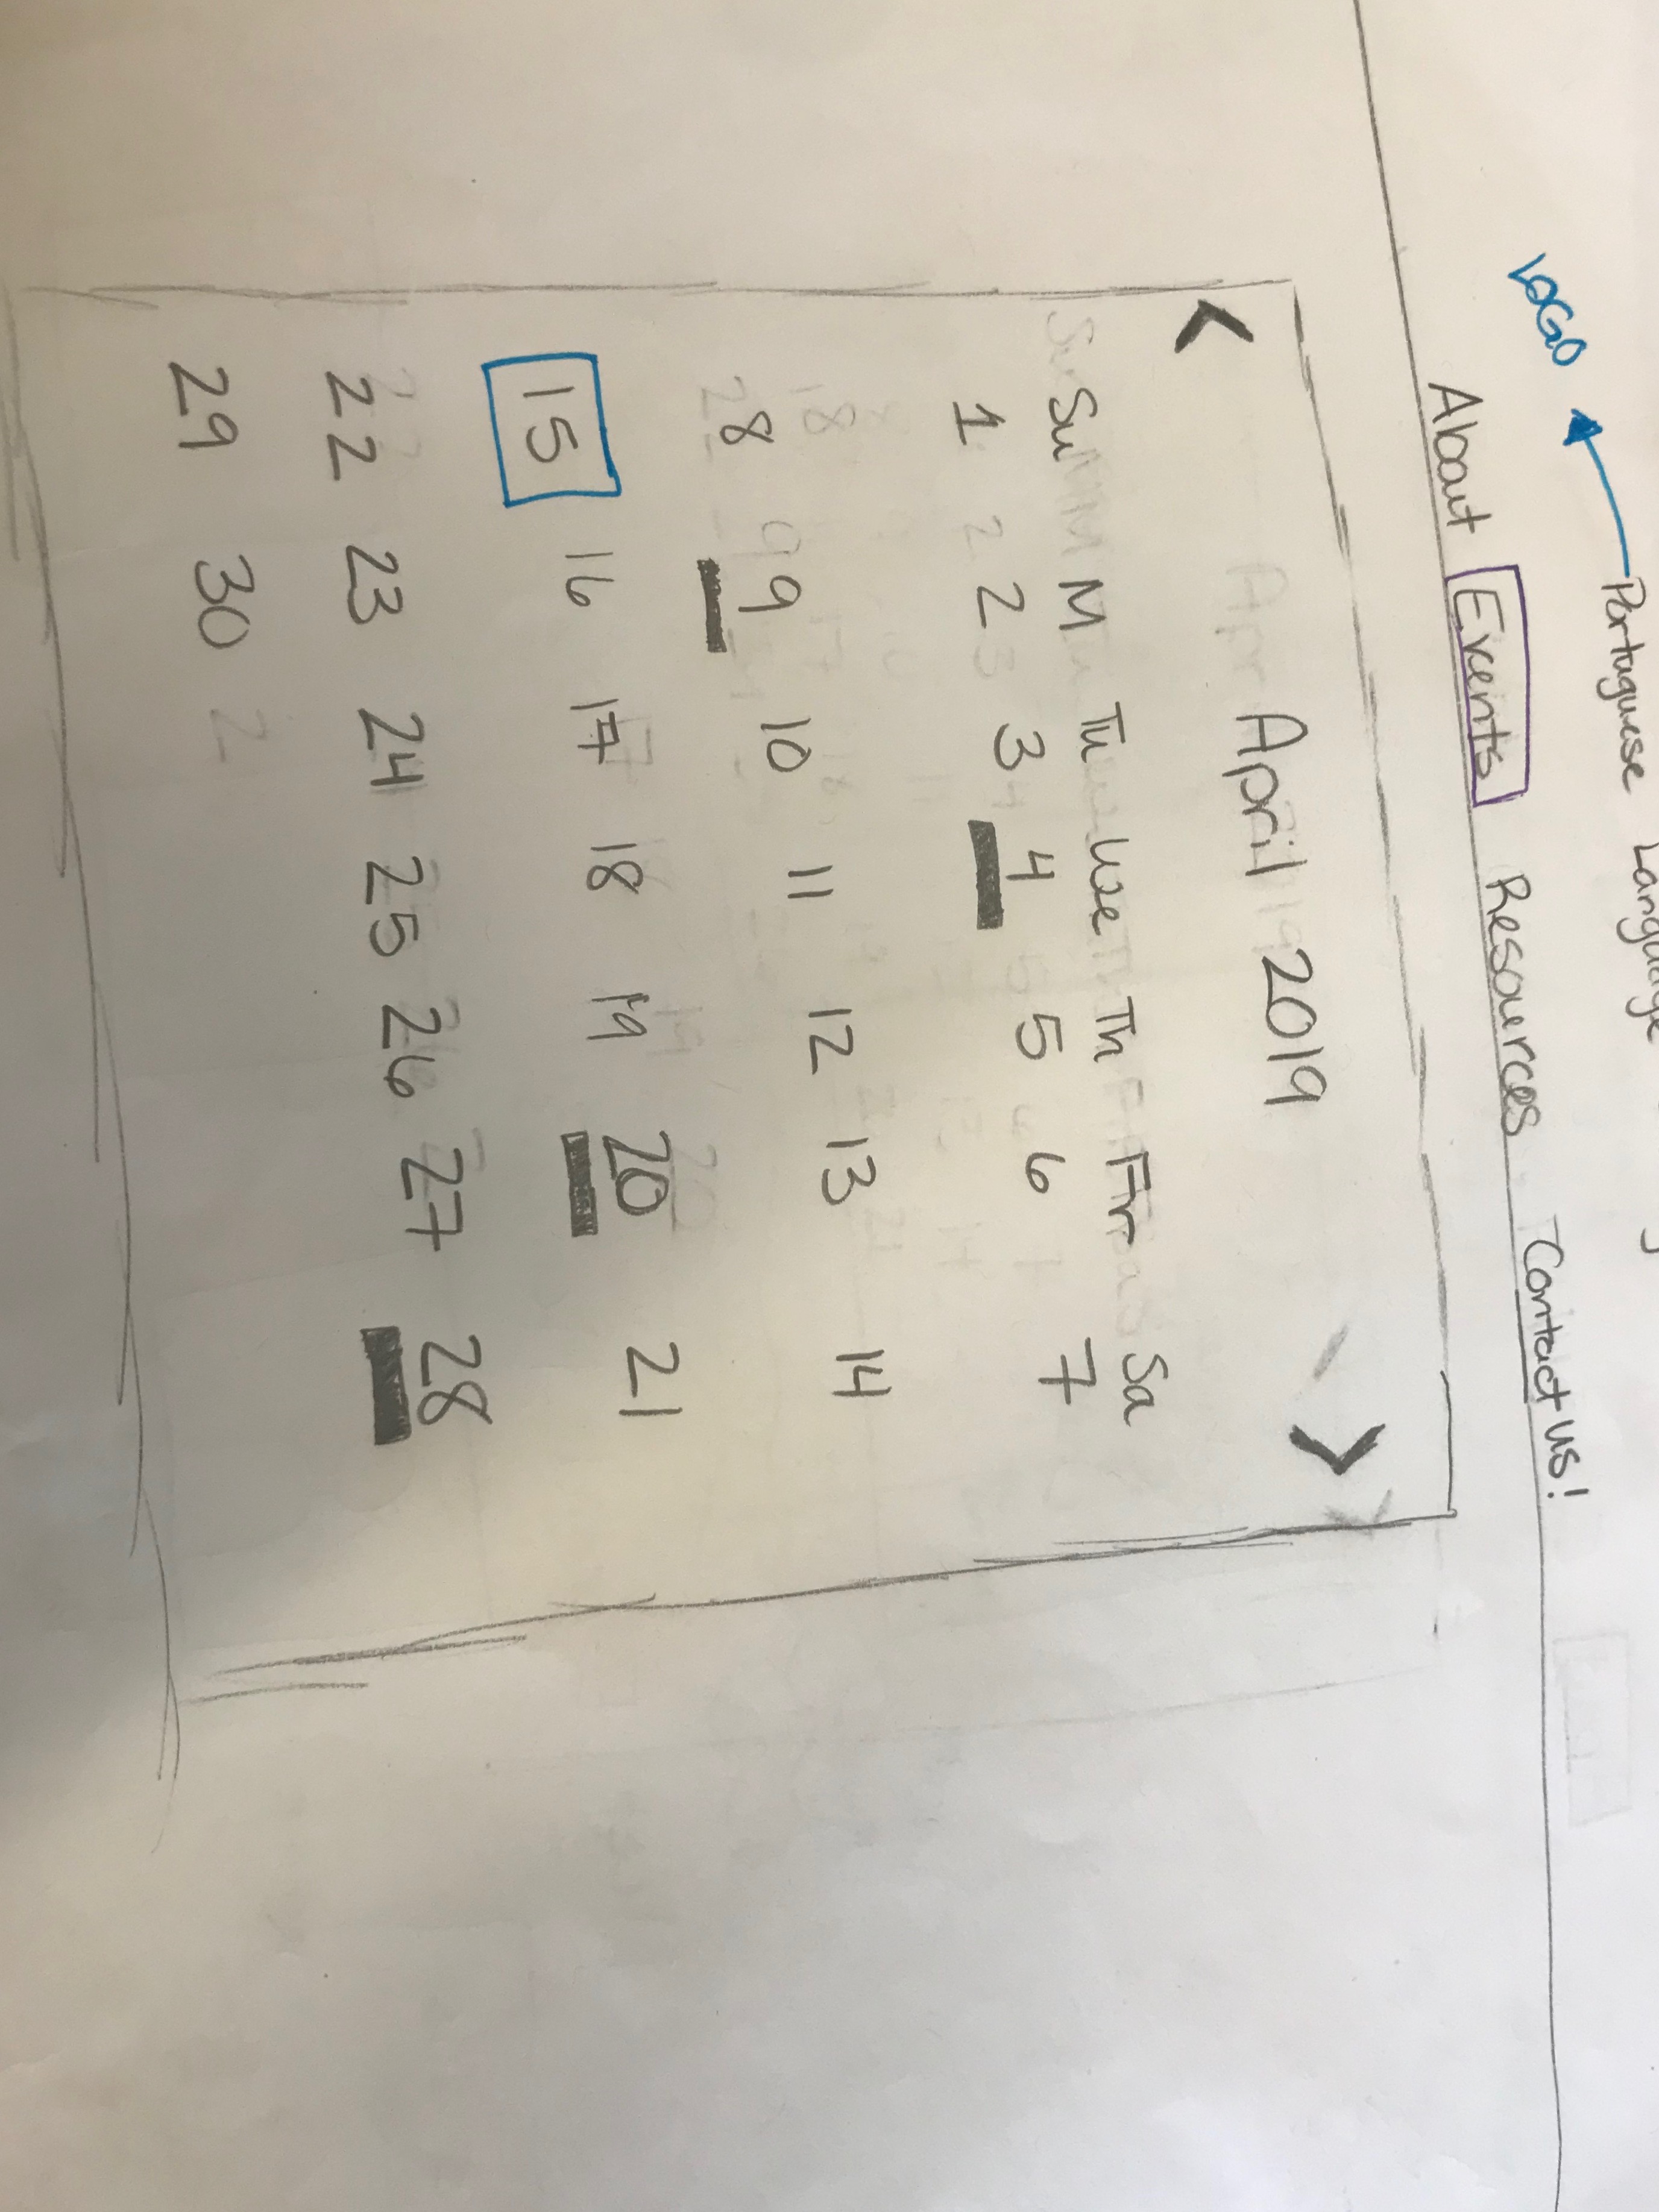 Portuguese Language
LOGO
About Events Resources Contact us!
< April 2019 >
Su M Tu We Th Fr Sa
1 2 3 4 5 6 7
8 9 10 11 12 13 14
15 16 17 18 19 20 21
22 23 24 25 26 27 28
29 30